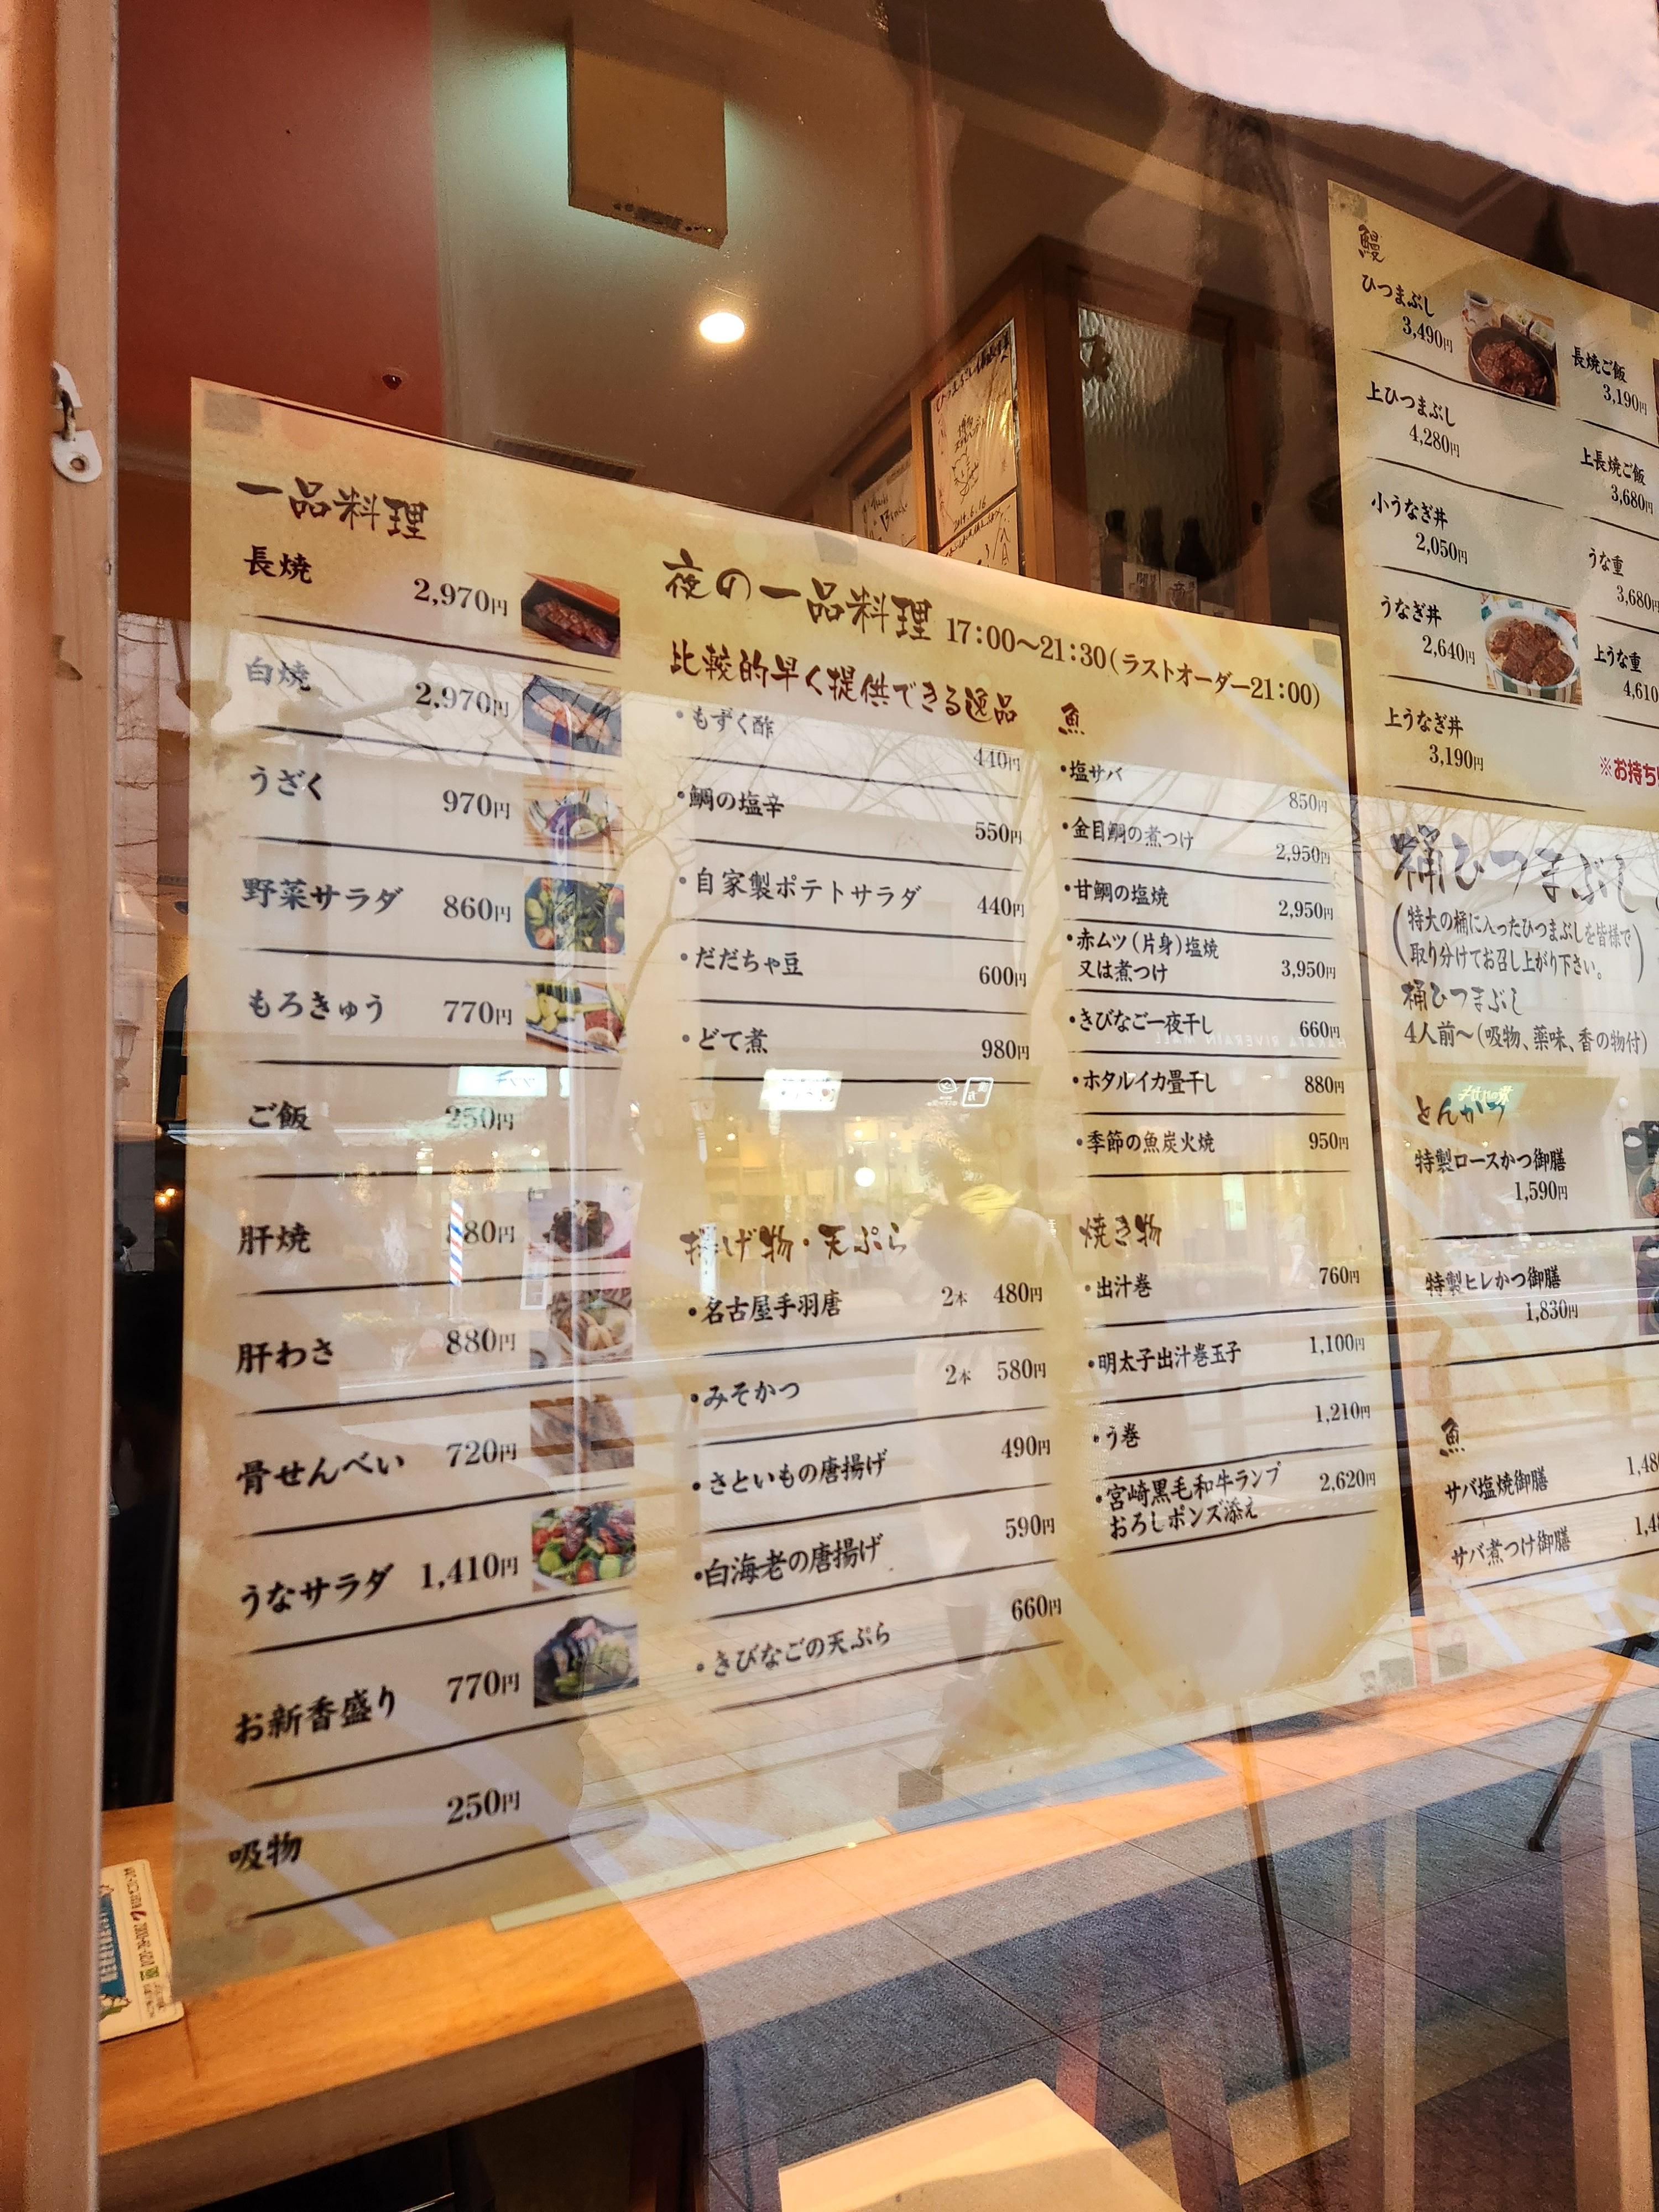 一品料理
長焼
2,970円
白焼
2,970円
うざく
970円
野菜サラダ 860円
もろきゅう 770円
ご飯 250円
肝焼 880円
肝わさ 880円
骨せんべい 720円
うなサラダ 1,410円
お新香盛り 770円
吸物 250円
夜の一品料理 17:00〜21:30(ラストオーダー21:00)
比較的早く提供できる逸品
・もずく酢 440円
・鯛の塩辛 550円
・自家製ポテトサラダ 440円
・だだちゃ豆 600円
・どて煮 980円
揚げ物・天ぷら
・名古屋手羽唐 2本 480円
・みそかつ 2本 580円
・さといもの唐揚げ 490円
・白海老の唐揚げ 590円
・きびなごの天ぷら 660円
魚
・塩サバ 850円
・金目鯛の煮つけ 2,950円
・甘鯛の塩焼 2,950円
・赤ムツ(片身)塩焼
又は煮つけ 3,950円
・きびなご一夜干し 660円
・ホタルイカ畳干し 880円
・季節の魚炭火焼 950円
焼き物
・出汁巻 760円
・明太子出汁巻玉子 1,100円
・う巻 1,210円
・宮崎黒毛和牛ランプ 2,620円
おろしポンズ添え
鰻
ひつまぶし
3,490円
上ひつまぶし
4,280円
小うなぎ丼
2,050円
うなぎ丼
2,640円
上うなぎ丼
3,190円
長焼ご飯
3,190円
上長焼ご飯
3,680円
うな重
3,680円
上うな重
4,610
※お持ち
桶ひつまぶし
(特大の桶に入ったひつまぶしを皆様で
取り分けてお召し上がり下さい。)
桶ひつまぶし
4人前〜(吸物、薬味、香の物付)
とんかつ
特製ロースかつ御膳
1,590円
特製ヒレかつ御膳
1,830円
魚
サバ塩焼御膳
サバ煮つけ御膳
HAKATA RIVERAIN MALL
2014.6.16